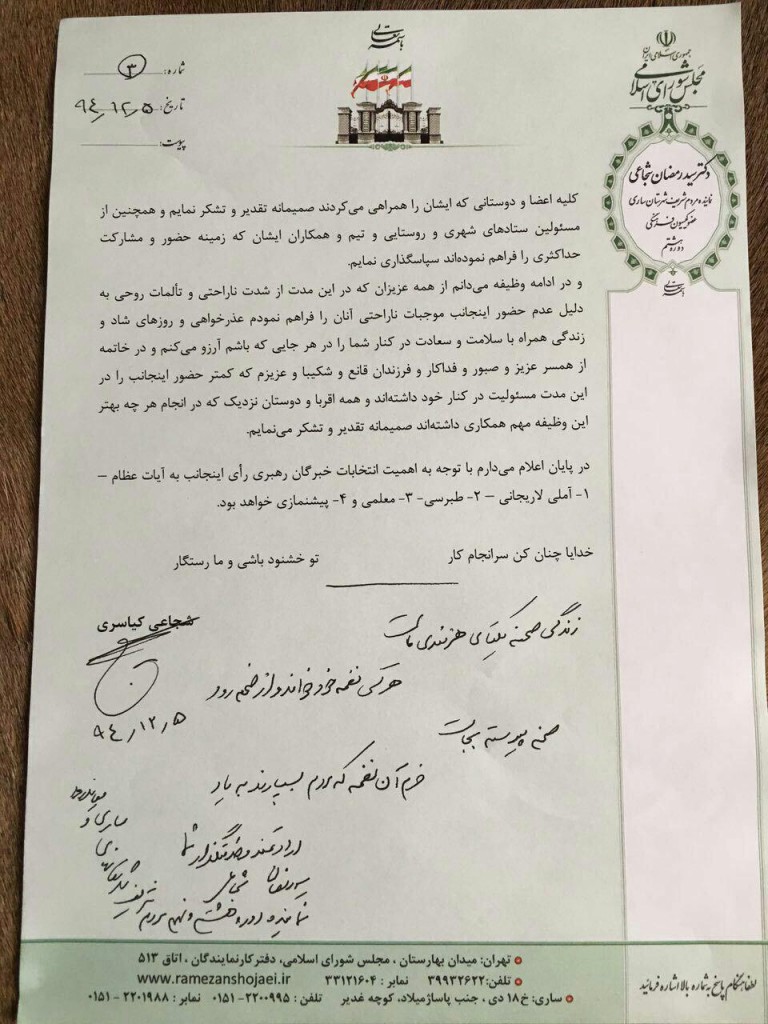 باسمه تعالی
جمهوری اسلامی ایران
مجلس شورای اسلامی
شماره: ۳
تاریخ: ۹۴/۱۲/۵
پیوست:
دکتر سید رمضان شجاعی
نماینده مردم شریف شهرستان ساری
عضو کمیسیون فرهنگی
دوره هشتم
باسمه تعالی
کلیه اعضا و دوستانی که ایشان را همراهی می‌کردند صمیمانه تقدیر و تشکر نمایم و همچنین از
مسئولین ستادهای شهری و روستایی و تیم و همکاران ایشان که زمینه حضور و مشارکت
حداکثری را فراهم نموده‌اند سپاسگذاری نمایم.
و در ادامه وظیفه می‌دانم از همه عزیزان که در این مدت از شدت ناراحتی و تألمات روحی به
دلیل عدم حضور اینجانب موجبات ناراحتی آنان را فراهم نمودم عذرخواهی و روزهای شاد و
زندگی همراه با سلامت و سعادت در کنار شما را در هر جایی که باشم آرزو می‌کنم و در خاتمه
از همسر عزیز و صبور و فداکار و فرزندان قانع و شکیبا و عزیزم که کمتر حضور اینجانب را در
این مدت مسئولیت در کنار خود داشته‌اند و همه اقربا و دوستان نزدیک که در انجام هر چه بهتر
این وظیفه مهم همکاری داشته‌اند صمیمانه تقدیر و تشکر می‌نمایم.
در پایان اعلام می‌دارم با توجه به اهمیت انتخابات خبرگان رهبری رأی اینجانب به آیات عظام –
۱- آملی لاریجانی – ۲- طبرسی- ۳- معلمی و ۴- پیشنمازی خواهد بود.
خدایا چنان کن سرانجام کار تو خشنود باشی و ما رستگار
شجاعی کیاسری
زندگی صحنه یکتای هنرمندی ماست
هر کسی نغمه خود خواند و از صحنه رود
۹۴/۱۲/۵
صحنه پیوسته بجاست
خرم آن نغمه که مردم بسپارند به یاد
ارادتمند و خدمتگذار شما
سید رمضان شجاعی
نماینده دوره هشتم و نهم مردم شریف
ساری و
تهران: میدان بهارستان ، مجلس شورای اسلامی، دفترکارنمایندگان ، اتاق ۵۱۳
تلفن: ۳۹۹۳۲۶۲۲ نمابر : ۳۳۱۲۱۶۰۴ www.ramezanshojaei.ir
ساری: خ۱۸ دی ، جنب پاساژمیلاد، کوچه غدیر تلفن : ۲۲۰۰۹۹۵-۰۱۵۱ نمابر : ۲۲۰۱۹۸۸-۰۱۵۱
لطفا هنگام پاسخ به شماره بالا اشاره فرمائید